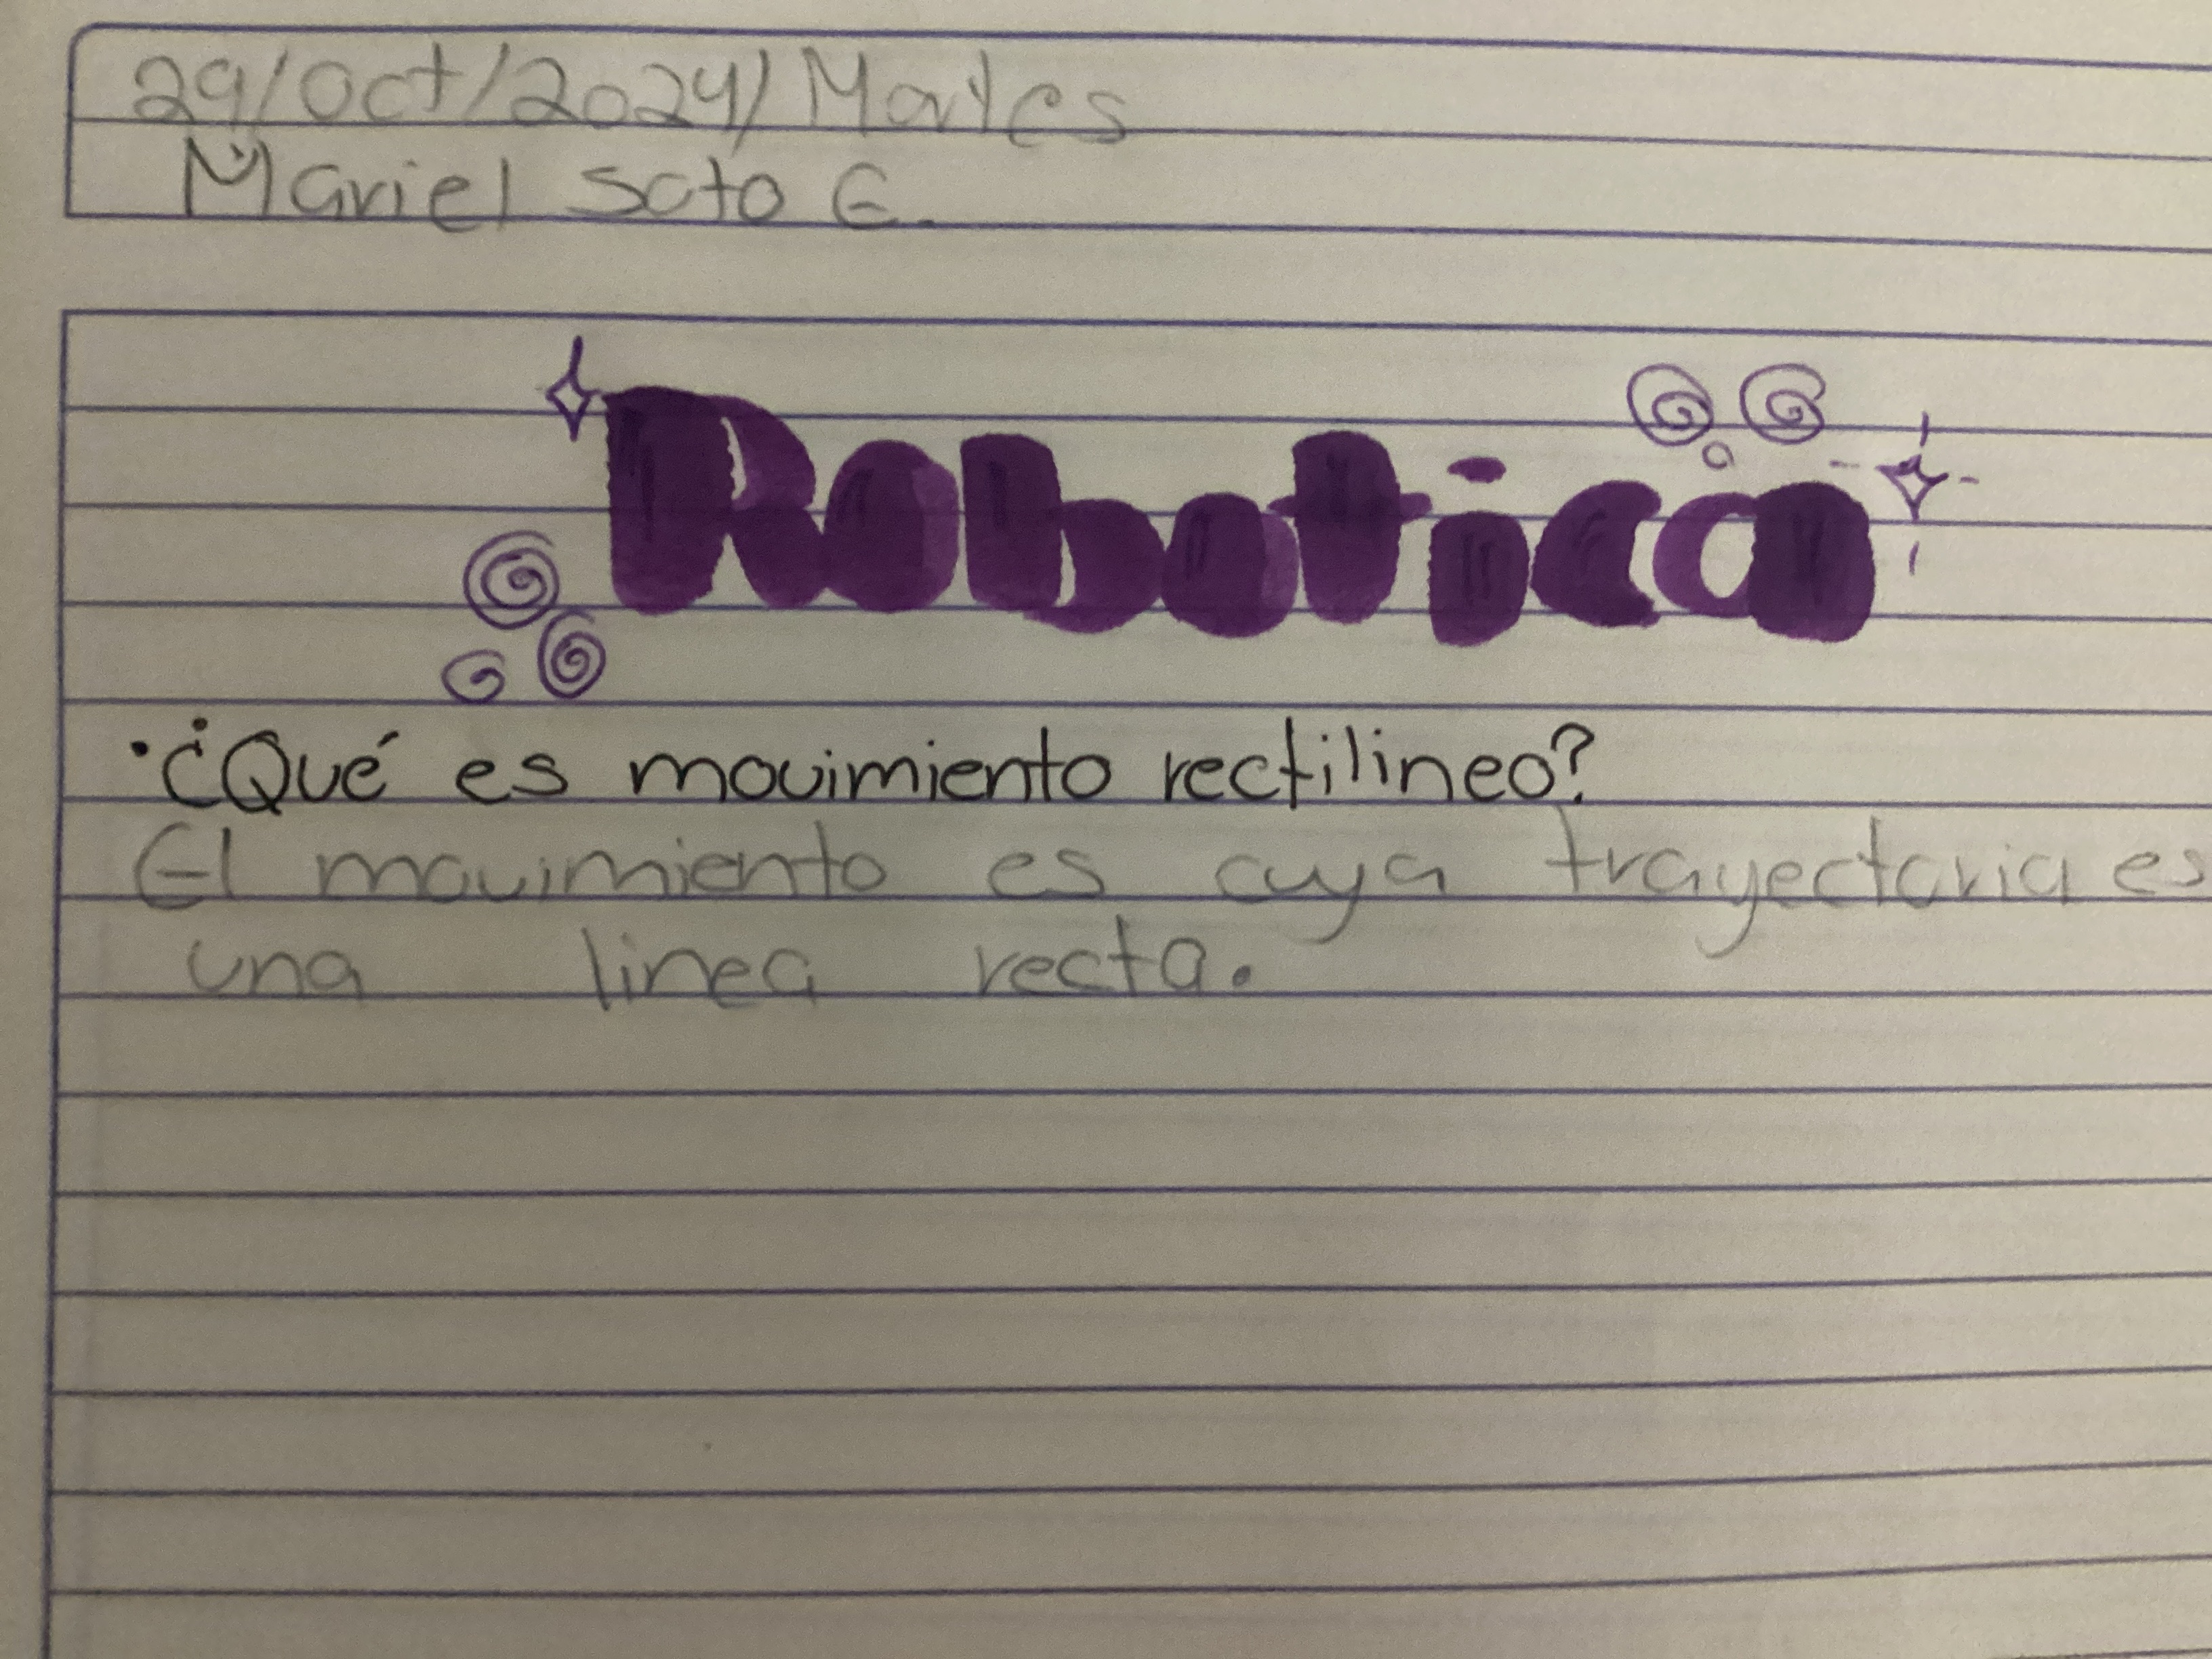 29/Oct/2024/Martes
Mariel Soto E.
Robotica
·¿Qué es movimiento rectilineo?
El movimiento es cuya trayectoria es
una linea recta.